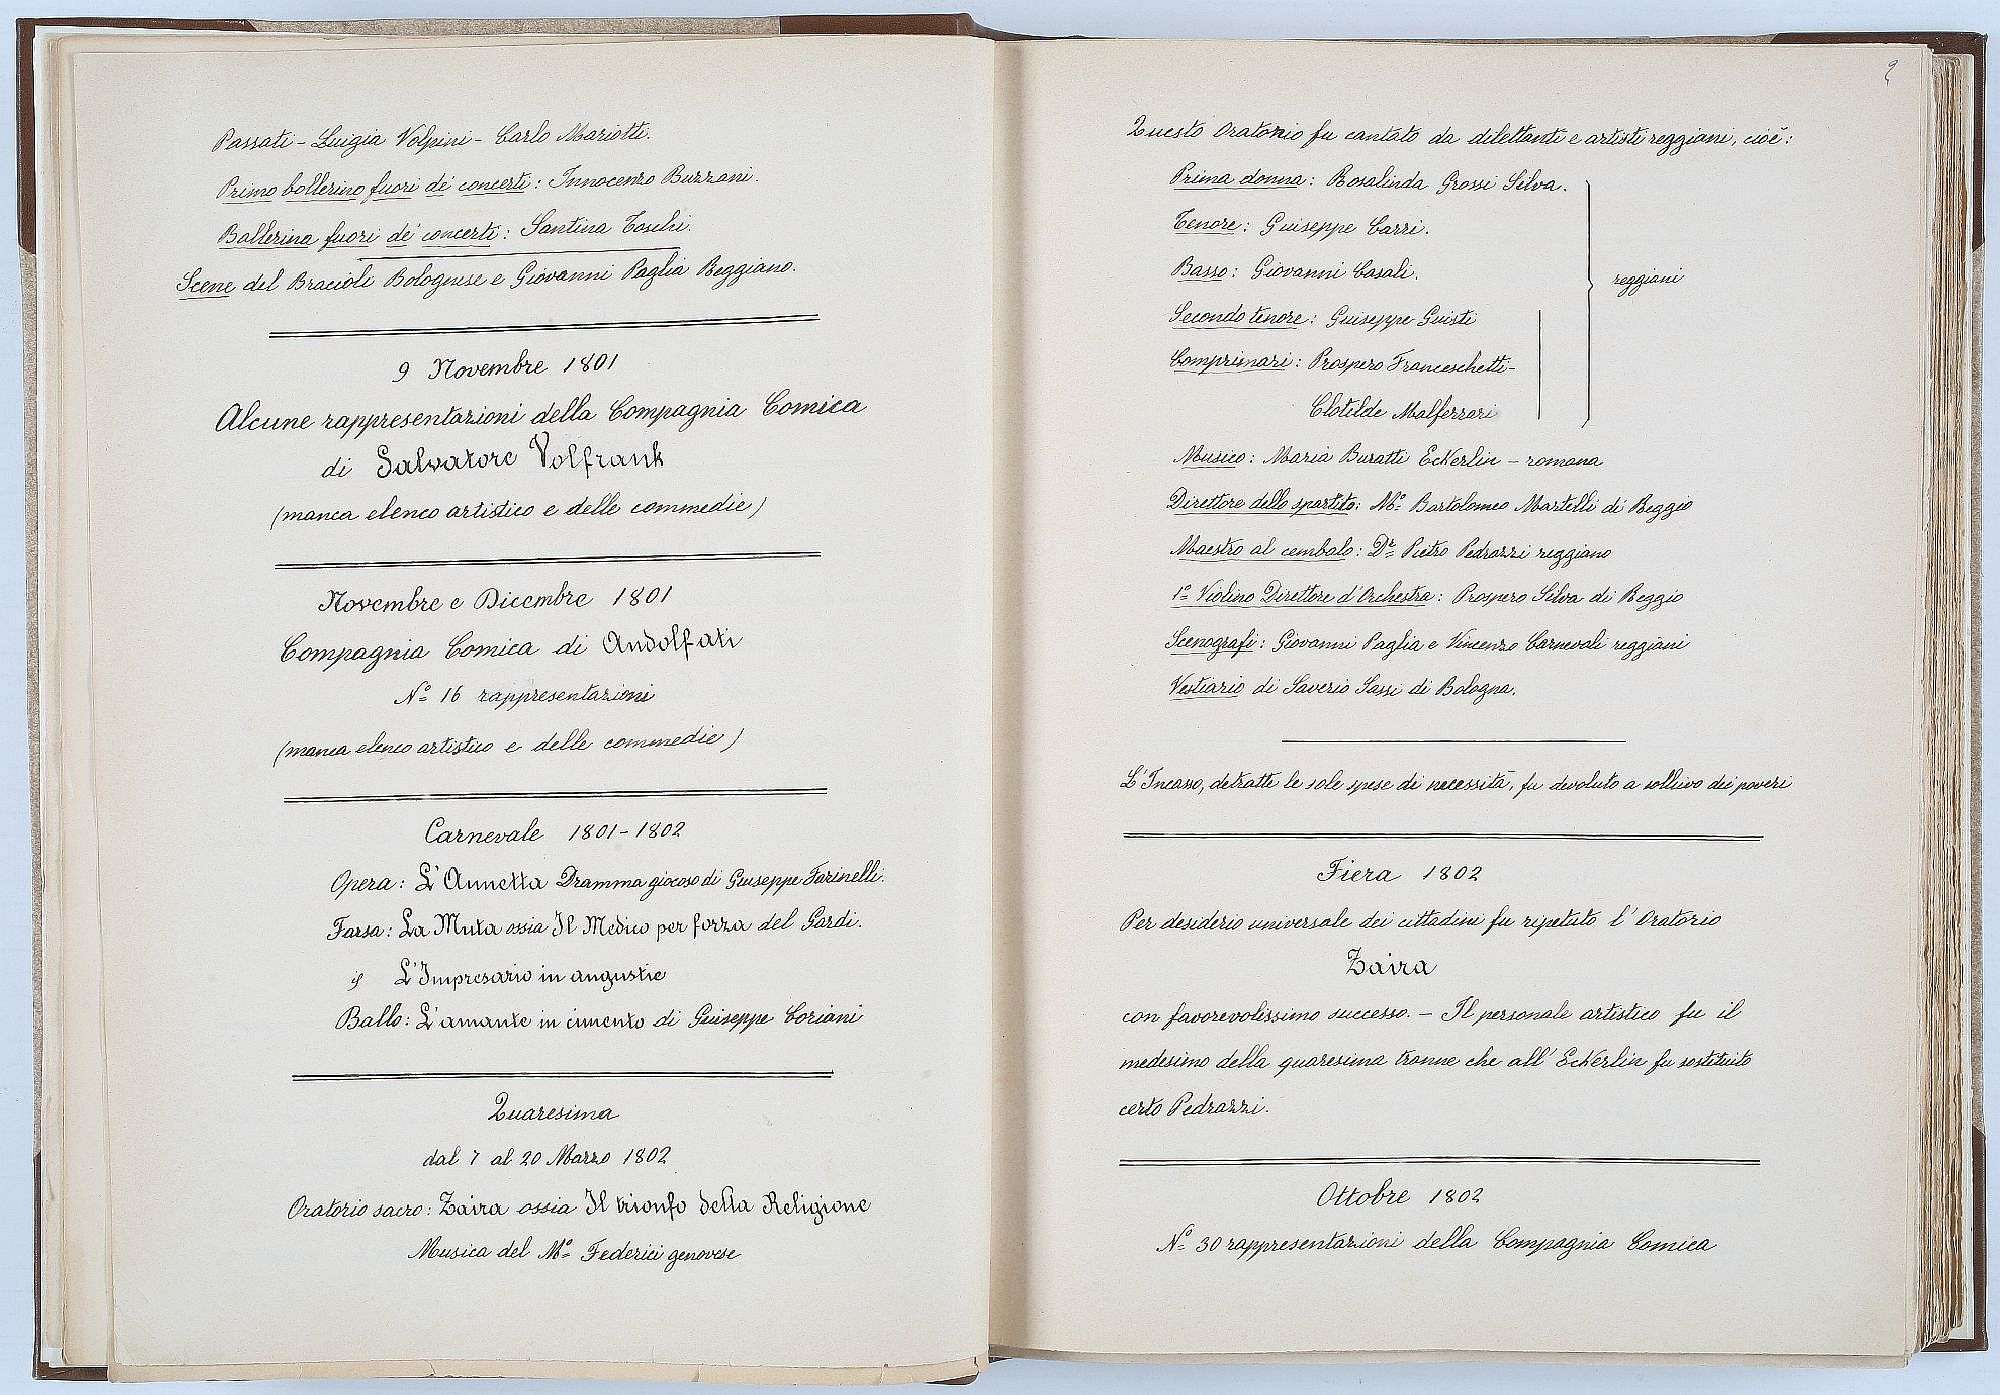 Passati - Luigia Volpini - Carlo Mariotti.
Primo ballerino fuori de' concerti: Innocenzo Buzzani.
Ballerina fuori de' concerti: Santina Toschi.
Scene del Bracioli Bolognese e Giovanni Paglia Reggiano.
9 Novembre 1801
Alcune rappresentazioni della Compagnia Comica
di Salvatore Volfrank
(manca elenco artistico e delle commedie)
Novembre e Dicembre 1801
Compagnia Comica di Andolfati
Nº 16 rappresentazioni
(manca elenco artistico e delle commedie)
Carnevale 1801-1802
Opera: L'Annetta Dramma giocoso di Giuseppe Farinelli.
Farsa: La Muta ossia Il Medico per forza del Gardi.
L'Impresario in angustie
Ballo: L'amante in cimento di Giuseppe Coriani
Quaresima
dal 7 al 20 Marzo 1802
Oratorio sacro: Zaira ossia Il trionfo della Religione
Musica del Mº Federici genovese
2
Questo Oratorio fu cantato da dilettanti e artisti reggiani, cioè:
Prima donna: Rosalinda Grossi Silva.
Tenore: Giuseppe Carri.
Basso: Giovanni Casali.
reggiani
Secondo tenore: Giuseppe Giusti
Comprimari: Prospero Franceschetti-
Clotilde Malferrari
Musico: Maria Buratti Eckerlin - romana
Direttore dello spartito: Mº Bartolomeo Martelli di Reggio
Maestro al cembalo: Dr Pietro Pedrazzi reggiano
1º Violino Direttore d'Orchestra: Prospero Silva di Reggio
Scenografi: Giovanni Paglia e Vincenzo Carnevali reggiani
Vestiario di Saverio Sassi di Bologna.
L'Incasso, detratte le sole spese di necessità, fu devoluto a sollievo dei poveri
Fiera 1802
Per desiderio universale dei cittadini fu ripetuto l'Oratorio
Zaira
con favorevolissimo successo. - Il personale artistico fu il
medesimo della quaresima tranne che all'Eckerlin fu sostituito
certo Pedrazzi.
Ottobre 1802
Nº 30 rappresentazioni della Compagnia Comica